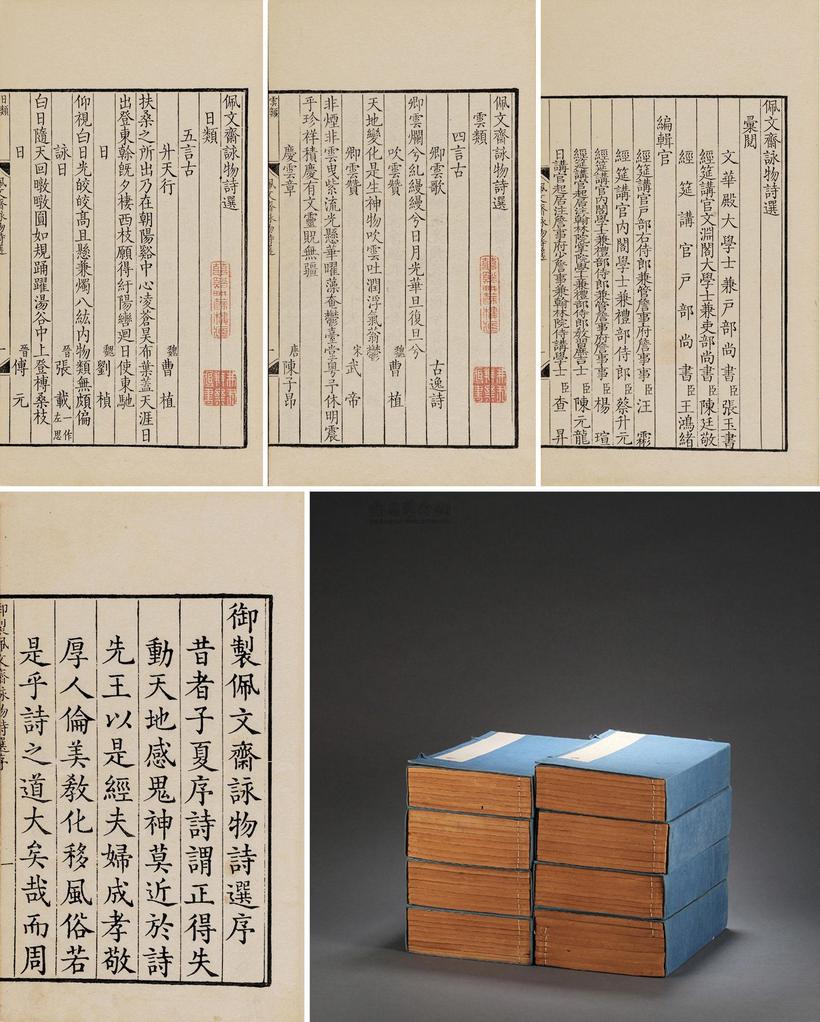 佩文齋詠物詩選
日類
五言古
升天行 魏 曹植
扶桑之所出乃在朝陽谿中心凌蒼昊布葉葢天涯日
出登東榦旣夕棲西枝願得紆陽轡迴日使東馳
日 魏 劉楨
仰視白日光皎皎高且懸兼燭八紘内物類無頗偏
詠日 晉 張載 一作左思
白日隨天回暾暾圓如規踊躍湯谷中上登榑桑枝
日 晉 傅元
日類
佩文齋詠物詩選
雲類
四言古
卿雲歌 古逸詩
卿雲爛兮糺縵縵兮日月光華旦復旦兮
吹雲贊 魏 曹植
天地變化是生神物吹雲吐潤浮氣蓊鬱
卿雲贊 宋 武帝
非煙非雲曳紫流光懸華曜藻奄鬱臺堂粤予休明震
乎珍祥積慶有文靈貺無疆
慶雲章 唐 陳子昂
佩文齋詠物詩選
彙閱
文華殿大學士兼戶部尚書臣張玉書
經筵講官文淵閣大學士兼吏部尚書臣陳廷敬
經筵講官戶部尚書臣王鴻緒
編輯官
經筵講官戶部右侍郎兼管詹事府詹事事臣汪霦
經筵講官內閣學士兼禮部侍郎臣蔡升元
經筵講官內閣學士兼禮部侍郎兼管詹事府詹事事臣楊瑄
經筵講官起居注翰林院掌院學士兼禮部侍郎教習庶吉士臣陳元龍
日講官起居注詹事府少詹事兼翰林院侍講學士臣查昇
御製佩文齋詠物詩選序
昔者子夏序詩謂正得失
動天地感鬼神莫近於詩
先王以是經夫婦成孝敬
厚人倫美教化移風俗若
是乎詩之道大矣哉而周
御製佩文齋詠物詩選序